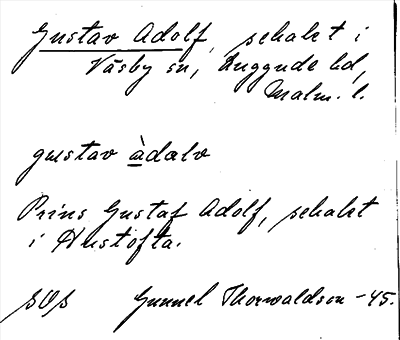 Gustav Adolf, schakt i
Väsby sn, Luggude hd,
Malm. l.
gustav àdalv
Prins Gustaf Adolf, schakt
i Hustofta.
SOS Gunnel Thorwaldson -45.